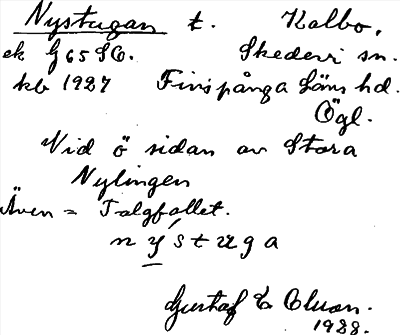 Nystugan t. Kolbo,
ek G65SO. Skedevi sn.
kb 1927 Finspånga läns hd.
Ögl.
Vid ö sidan av Stora
Nylingen
Även = Talgfallet.
n ý s t u g a
Gustaf E
1928.